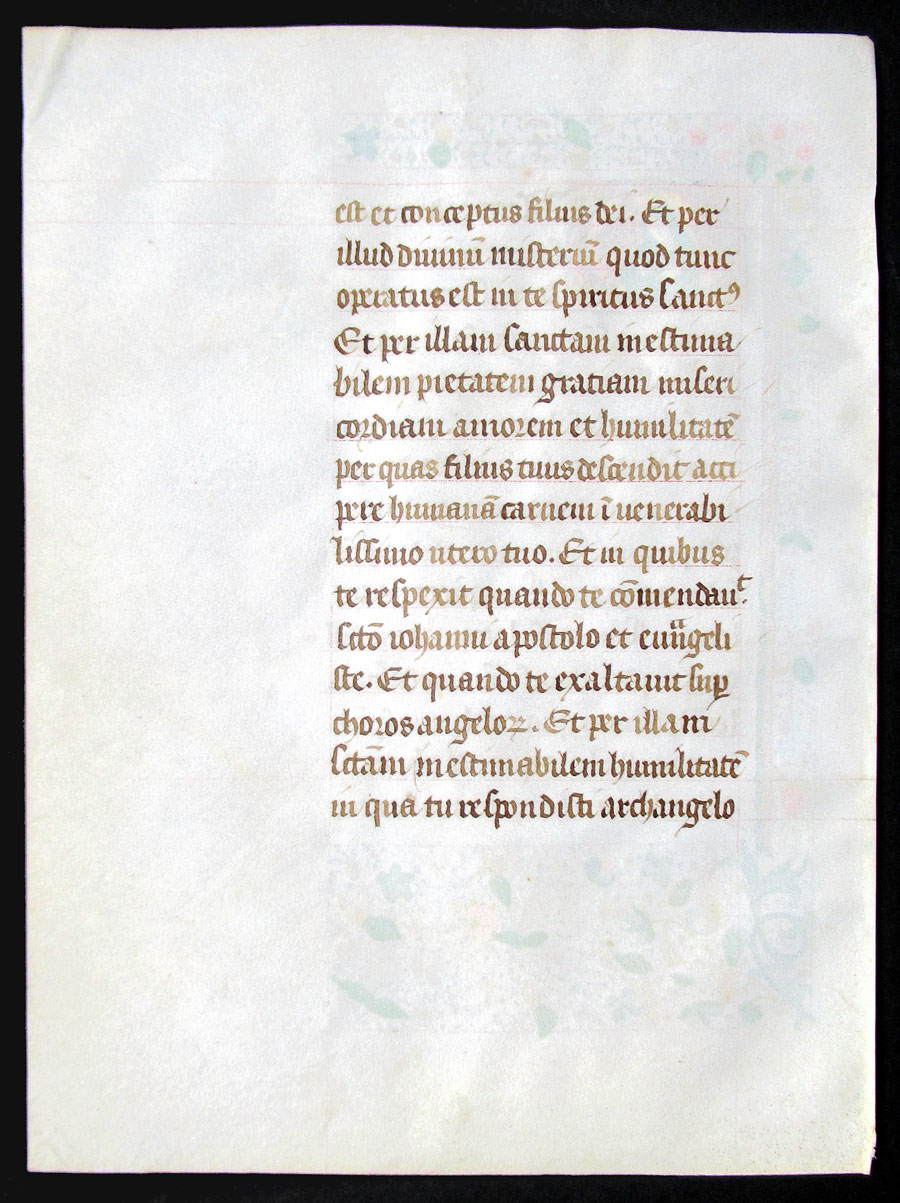 est et conceptus filius dei. Et per
illud diuinū misteriū quod tunc
operatus est in te spiritus sanctꝰ
Et per illam sanctam inestima
bilem pietatem gratiam miseri
cordiam amorem et humilitatē
per quas filius tuus descendit acci
pere humanā carnem ī uenerabi
lissimo utero tuo. Et in quibus
te respexit quando te cōmendauᵗ.
sctō iohanni apostolo et euᵃngeli
ste. Et quando te exaltauit suꝑ
choros angeloꝝ. Et per illam
sctām inestimabilem humilitatē
in qua tu respondisti archangelo